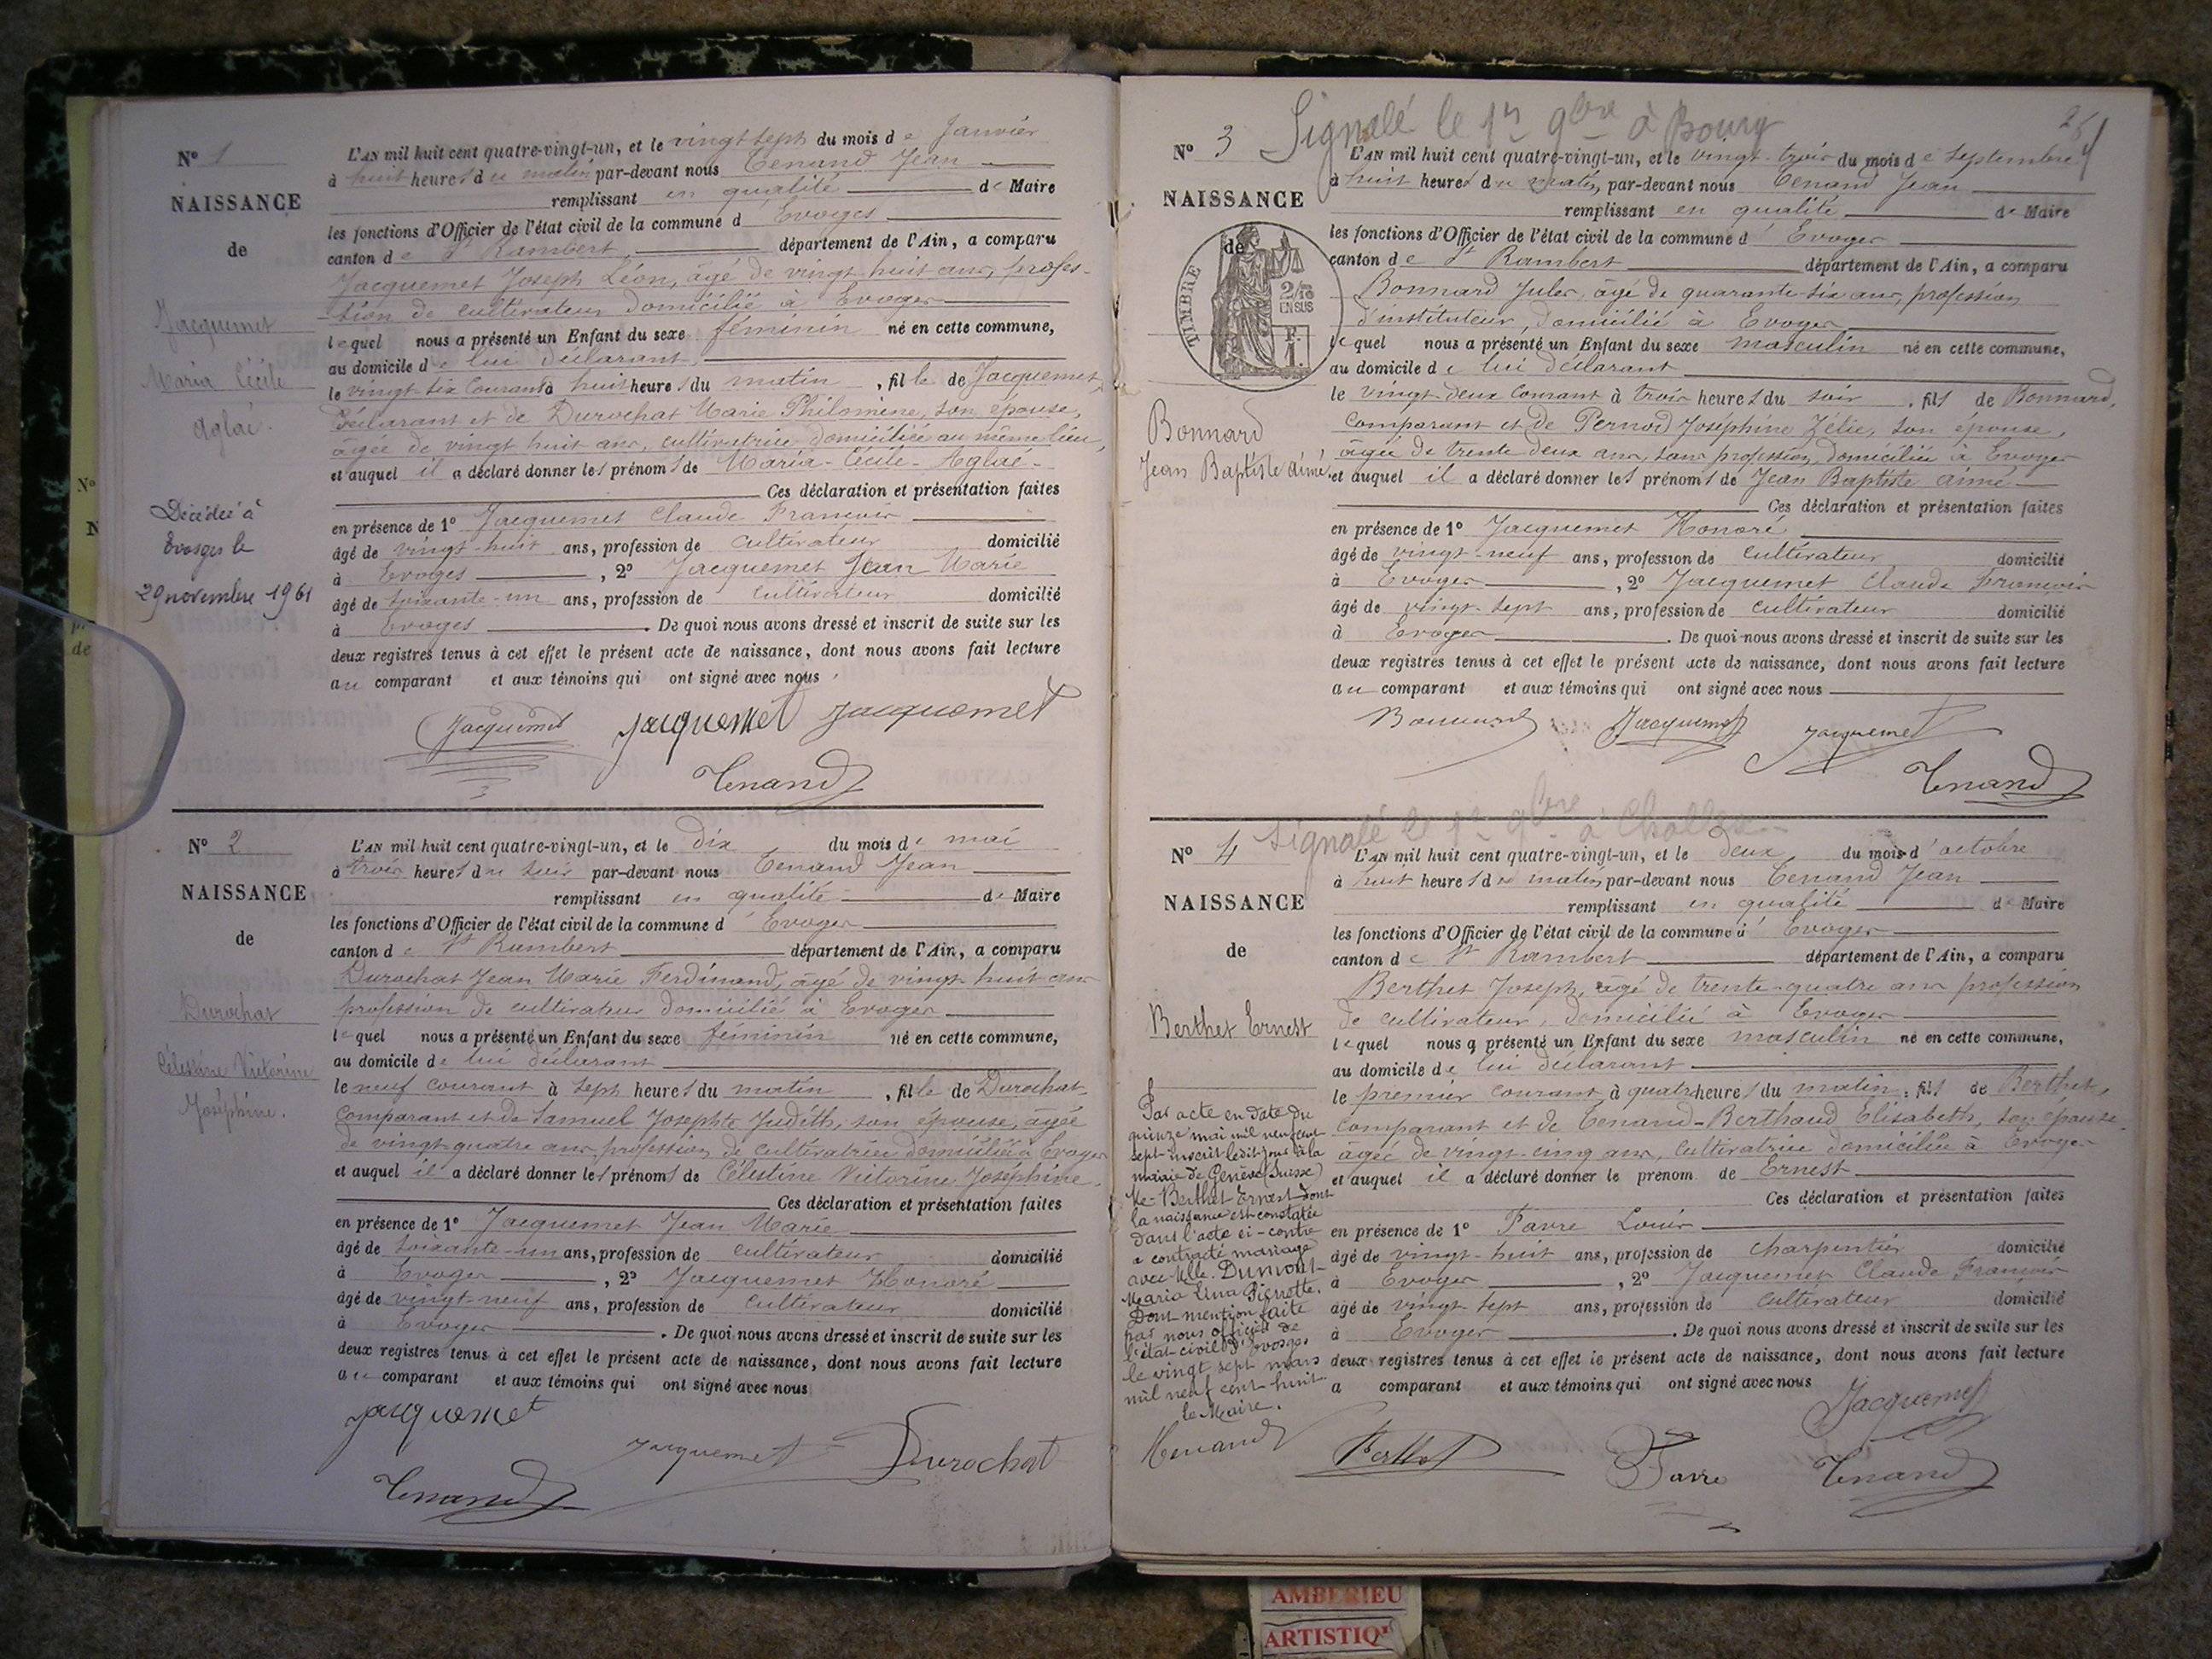 N° 1
NAISSANCE
de
Jacquemet
Maria Cécile
Aglaé.
Décédée à
Evosges le
29 novembre 1961
L'AN mil huit cent quatre-vingt-un, et le vingt sept du mois de Janvier
à huit heures du matin par-devant nous Tenand Jean
remplissant en qualité de Maire
les fonctions d'Officier de l'état civil de la commune d Evoges
canton de St Rambert département de l'Ain, a comparu
Jacquemet Joseph Léon, âgé de vingt huit ans, profes-
sion de cultivateur domicilié à Evoges
lequel nous a présenté un Enfant du sexe féminin né en cette commune,
au domicile de lui déclarant
le vingt-six Courant à huit heures du matin, fille de Jacquemet
déclarant et de Durochat Marie Philomène, son épouse,
âgée de vingt huit ans, cultivatrice domiciliée au même lieu,
et auquel il a déclaré donner les prénoms de Maria-Cécile-Aglaé-
Ces déclaration et présentation faites
en présence de 1° Jacquemet Claude François
âgé de vingt-huit ans, profession de cultivateur domicilié
à Evoges, 2° Jacquemet Jean Marie
âgé de soixante-un ans, profession de cultivateur domicilié
à Evoges. De quoi nous avons dressé et inscrit de suite sur les
deux registres tenus à cet effet le présent acte de naissance, dont nous avons fait lecture
au comparant et aux témoins qui ont signé avec nous
Jacquemet Jacquemet Jacquemet
Tenand
N° 2
NAISSANCE
de
Durochat
Célestine Victorine
Joséphine.
L'AN mil huit cent quatre-vingt-un, et le dix du mois de mai
à trois heures du soir par-devant nous Tenand Jean
remplissant en qualité de Maire
les fonctions d'Officier de l'état civil de la commune d' Evoges
canton de St Rambert département de l'Ain, a comparu
Durochat Jean Marie Ferdinand, âgé de vingt-huit ans
profession de cultivateur domicilié à Evoges
lequel nous a présenté un Enfant du sexe féminin né en cette commune,
au domicile de lui déclarant
le neuf courant à sept heures du matin, fille de Durochat
comparant et de Samuel Josephte Judith, son épouse, âgée
de vingt-quatre ans, profession de cultivatrice domiciliée à Evoges
et auquel il a déclaré donner les prénoms de Célestine Victorine Joséphine.
Ces déclaration et présentation faites
en présence de 1° Jacquemet Jean Marie
âgé de soixante-un ans, profession de cultivateur domicilié
à Evoges, 2° Jacquemet Honoré
âgé de vingt-neuf ans, profession de cultivateur domicilié
à Evoges. De quoi nous avons dressé et inscrit de suite sur les
deux registres tenus à cet effet le présent acte de naissance, dont nous avons fait lecture
au comparant et aux témoins qui ont signé avec nous
Jacquemet
Jacquemet Durochat
Tenand
Signalé le 1er 9bre à Bourg
N° 3
NAISSANCE
de
TIMBRE
2/10
EN SUS
F.
1.
Bonnard
Jean Baptiste aimé
L'AN mil huit cent quatre-vingt-un, et le vingt-trois du mois de septembre
à huit heures du matin, par-devant nous Tenand Jean
remplissant en qualité de Maire
les fonctions d'Officier de l'état civil de la commune d' Evoges
canton de St Rambert département de l'Ain, a comparu
Bonnard Jules, âgé de quarante-six ans, profession
d'instituteur, domicilié à Evoges
lequel nous a présenté un Enfant du sexe masculin né en cette commune,
au domicile de lui déclarant
le vingt-deux courant à trois heures du soir, fils de Bonnard,
comparant et de Pernod Joséphine Zélie, son épouse,
âgée de trente deux ans, sans profession, domiciliée à Evoges
et auquel il a déclaré donner les prénoms de Jean Baptiste aimé
Ces déclaration et présentation faites
en présence de 1° Jacquemet Honoré
âgé de vingt-neuf ans, profession de cultivateur domicilié
à Evoges, 2° Jacquemet Claude François
âgé de vingt-sept ans, profession de cultivateur domicilié
à Evoges. De quoi nous avons dressé et inscrit de suite sur les
deux registres tenus à cet effet le présent acte de naissance, dont nous avons fait lecture
au comparant et aux témoins qui ont signé avec nous
Bonnard Jacquemet Jacquemet
Tenand
Signalé le 1er 9bre à
N° 4
NAISSANCE
de
Berthet Ernest
Par acte en date du
quinze mai mil neuf cent
sept inscrit ledit jour à la
mairie de Genève (Suisse)
Mr Berthet Ernest dont
la naissance est constatée
dans l'acte ci-contre
a contracté mariage
avec Melle Dumont
Maria Lina Pierrette.
Dont mention faite
par nous officier de
l'état-civil d'Evosges
le vingt sept mars
mil neuf cent huit.
le Maire.
L'AN mil huit cent quatre-vingt-un, et le deux du mois d'octobre
à huit heures du matin, par-devant nous Tenand Jean
remplissant en qualité de Maire
les fonctions d'Officier de l'état civil de la commune d' Evoges
canton de St Rambert département de l'Ain, a comparu
Berthet Joseph, âgé de trente-quatre ans profession
de cultivateur, domicilié à Evoges
lequel nous a présenté un Enfant du sexe masculin né en cette commune,
au domicile de lui déclarant
le premier courant à quatre heures du matin, fils de Berthet,
comparant et de Tenand-Berthaud Elisabeth, son épouse
âgée de vingt-cinq ans, cultivatrice domiciliée à Evoges
et auquel il a déclaré donner le prénom de Ernest
Ces déclaration et présentation faites
en présence de 1° Favre Louis
âgé de vingt-huit ans, profession de charpentier domicilié
à Evoges, 2° Jacquemet Claude François
âgé de vingt-sept ans, profession de cultivateur domicilié
à Evoges. De quoi nous avons dressé et inscrit de suite sur les
deux registres tenus à cet effet le présent acte de naissance, dont nous avons fait lecture
a comparant et aux témoins qui ont signé avec nous
Jacquemet
Berthet Favre Tenand
AMBERIEU
ARTISTIQ